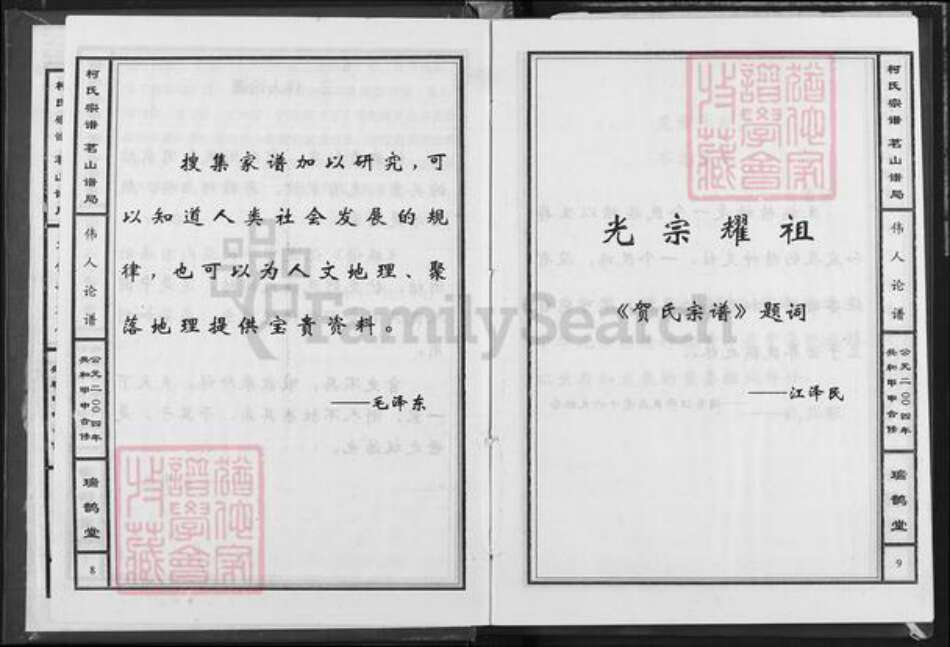 柯氏宗谱 茗山谱局
伟人论谱
公元二00四年
共和甲申合修
瑞鹊堂
8
搜集家谱加以研究,可
以知道人类社会发展的规
律,也可以为人文地理、聚
落地理提供宝贵资料。
——毛泽东
FamilySearch
猶他家
譜學會
收藏
光宗耀祖
《贺氏宗谱》题词
——江泽民
猶他家
譜學會
收藏
柯氏宗谱 茗山谱局
伟人论谱
公元二00四年
共和甲申合修
瑞鹊堂
9